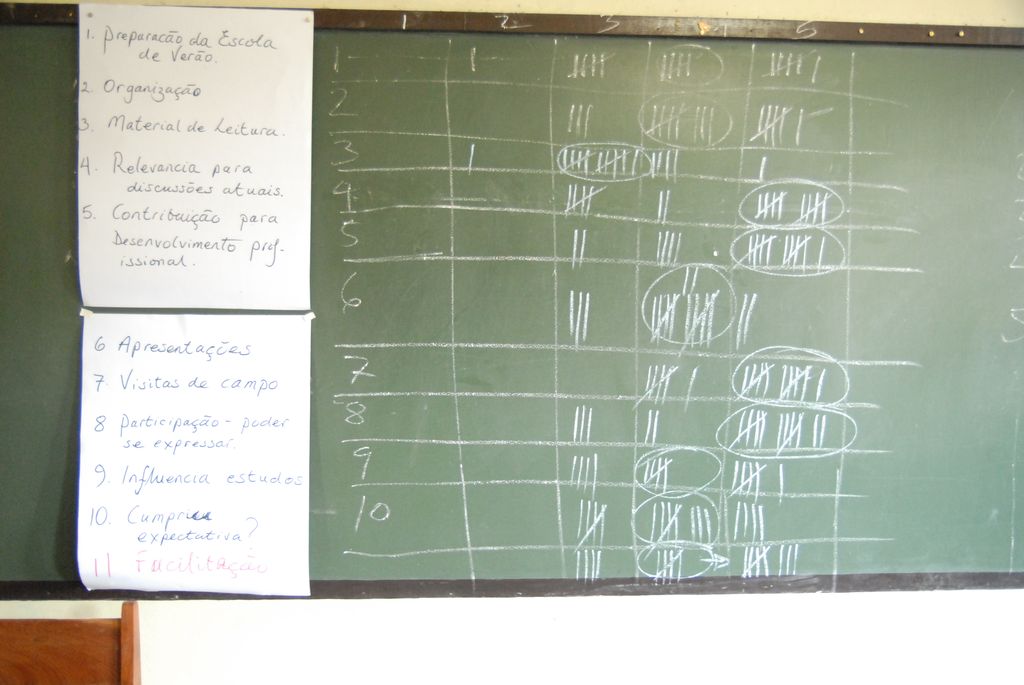 1 2 3 4 5
1. Preparação da Escola
de Verão.
2. Organização
3. Material de Leitura.
4. Relevancia para
discussões atuais.
5. Contribuição para
Desenvolvimento prof-
issional.
6 Apresentações
7. Visitas de campo
8 Participação - poder
se expressar.
9. Influencia estudos
10. Cumpriu
expectativa?
11 Facilitação
1
2
3
4
5
6
7
8
9
10